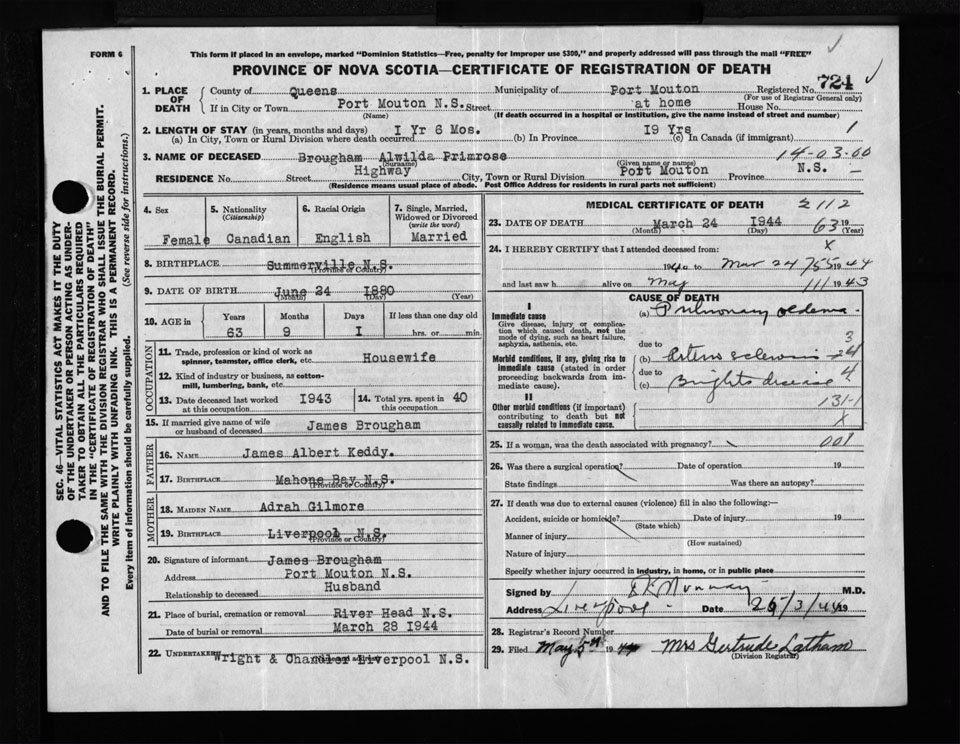 FORM 6
This form if placed in an envelope, marked "Dominion Statistics—Free, penalty for improper use $300," and properly addressed will pass through the mail "FREE"
PROVINCE OF NOVA SCOTIA—CERTIFICATE OF REGISTRATION OF DEATH
1. PLACE OF DEATH County of Queens Municipality of Port Mouton Registered No. 724
(For use of Registrar General only)
If in City or Town Port Mouton N.S. Street at home House No.
(Name) (If death occurred in a hospital or institution, give the name instead of street and number)
2. LENGTH OF STAY (in years, months and days) I Yr 6 Mos. I9 Yrs 1
(a) In City, Town or Rural Division where death occurred (b) In Province (c) In Canada (if immigrant)
3. NAME OF DECEASED Brougham Alwilda Primrose 14-03-00
(Surname) (Given name or names)
RESIDENCE No. Street Highway City, Town or Rural Division Port Mouton Province N.S.
(Residence means usual place of abode. Post Office Address for residents in rural parts not sufficient)
4. Sex Female
5. Nationality (Citizenship) Canadian
6. Racial Origin English
7. Single, Married, Widowed or Divorced (write the word) Married
8. BIRTHPLACE Summerville N.S.
(Province or Country)
9. DATE OF BIRTH June 24 I880
(Month) (Day) (Year)
10. AGE in Years Months Days If less than one day old
63 9 I hrs. or min.
OCCUPATION
11. Trade, profession or kind of work as spinner, teamster, office clerk, etc. Housewife
12. Kind of industry or business, as cotton-mill, lumbering, bank, etc.
13. Date deceased last worked at this occupation I943
14. Total yrs. spent in this occupation 40
15. If married give name of wife or husband of deceased James Brougham
FATHER
16. NAME James Albert Keddy.
17. BIRTHPLACE Mahone Bay N.S.
(Province or Country)
MOTHER
18. MAIDEN NAME Adrah Gilmore
19. BIRTHPLACE Liverpool N.S.
(Province or Country)
20. Signature of informant James Brougham
Address Port Mouton N.S.
Relationship to deceased Husband
21. Place of burial, cremation or removal River Head N.S.
Date of burial or removal March 28 1944
22. UNDERTAKER Wright & Chandler Liverpool N.S.
MEDICAL CERTIFICATE OF DEATH 2112
23. DATE OF DEATH March 24 I944 63 19
(Month) (Day) (Year)
24. I HEREBY CERTIFY that I attended deceased from: X
1940 to Mar 24/55 1944
and last saw h alive on May 111 1943
CAUSE OF DEATH
I
Immediate cause
Give disease, injury or complication which caused death, not the mode of dying, such as heart failure, asphyxia, asthenia, etc.
(a) Pulmonary oedema
due to 3
Morbid conditions, if any, giving rise to immediate cause (stated in order proceeding backwards from immediate cause).
(b) Arterio sclerosis 4
due to 4
(c) Brights disease
II
Other morbid conditions (if important) contributing to death but not causally related to immediate cause.
131-1
X
25. If a woman, was the death associated with pregnancy? 009
26. Was there a surgical operation? Date of operation 19
State findings Was there an autopsy?
27. If death was due to external causes (violence) fill in also the following—
Accident, suicide or homicide? Date of injury 19
(State which)
Manner of injury
(How sustained)
Nature of injury
Specify whether injury occurred in industry, in home, or in public place
Signed by M.D.
Address Liverpool Date 26/3/44 19
28. Registrar's Record Number
29. Filed May 5th 1944 Mrs Gertrude Latham
(Division Registrar)
SEC. 46—VITAL STATISTICS ACT MAKES IT THE DUTY
OF THE UNDERTAKER OR PERSON ACTING AS UNDER-
TAKER TO OBTAIN ALL THE PARTICULARS REQUIRED
IN THE "CERTIFICATE OF REGISTRATION OF DEATH"
AND TO FILE THE SAME WITH THE DIVISION REGISTRAR WHO SHALL ISSUE THE BURIAL PERMIT.
WRITE PLAINLY WITH UNFADING INK. THIS IS A PERMANENT RECORD.
Every item of information should be carefully supplied. (See reverse side for instructions.)